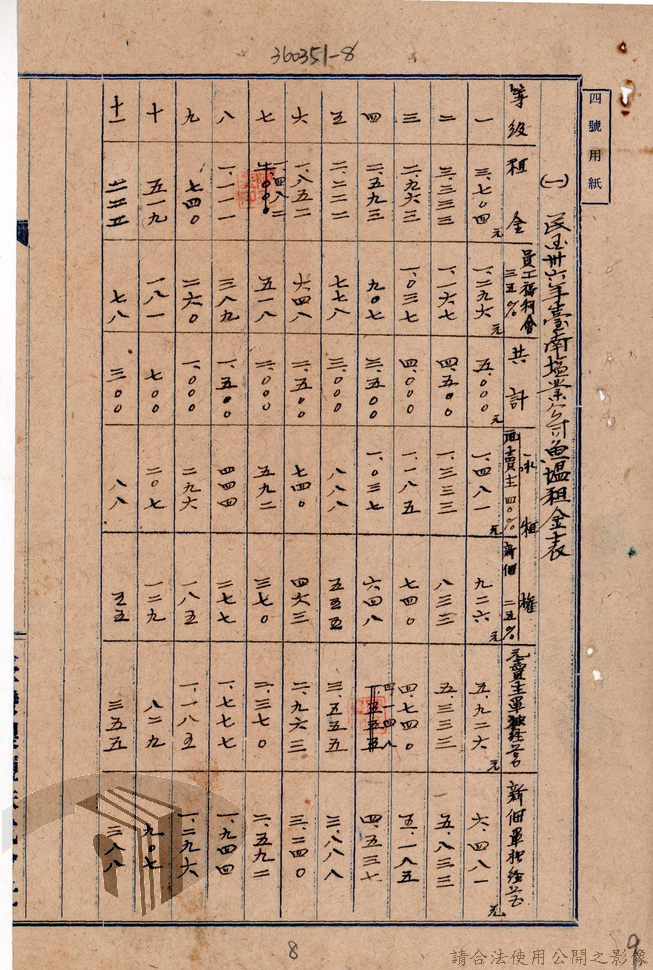 360351-8
四號用紙
(一) 民国卅六年臺南塩業公司魚塭租金表
等級 一 二 三 四 五 六 七 八 九 十 十一
租金 三、七〇四元 三、三三三 二、九六三 二、五九三 二、二二二 一、八五二 一、四八二 一、一一一 七四〇 五一九 二二二
員工福利會三五% 一、二九六元 一、一六七 一、〇三七 九〇七 七七八 六四八 五一八 三八九 二六〇 一八一 七八
共計 五、〇〇〇元 四、五〇〇 四、〇〇〇 三、五〇〇 三、〇〇〇 二、五〇〇 二、〇〇〇 一、五〇〇 一、〇〇〇 七〇〇 三〇〇
永租權
賣主四〇% 一、四八一元 一、三三三 一、一八五 一、〇三七 八八八 七四〇 五九二 四四四 二九六 二〇七 八八
新佃二五% 九二六元 八三三 七四〇 六四八 五五五 四六三 三七〇 二七七 一八五 一二九 五五
賣主單獨經營 五、九二六元 五、三三三 四、七四〇 四、一四八 三、五五五 二、九六三 二、三七〇 一、七七七 一、一八五 八二九 三五五
新佃單独經营 六、四八一元 五、八三三 五、一八五 四、五三七 三、八八八 三、二四〇 二、五九二 一、九四四 一、二九六 九〇七 三八八
8
9
請合法使用公開之影像